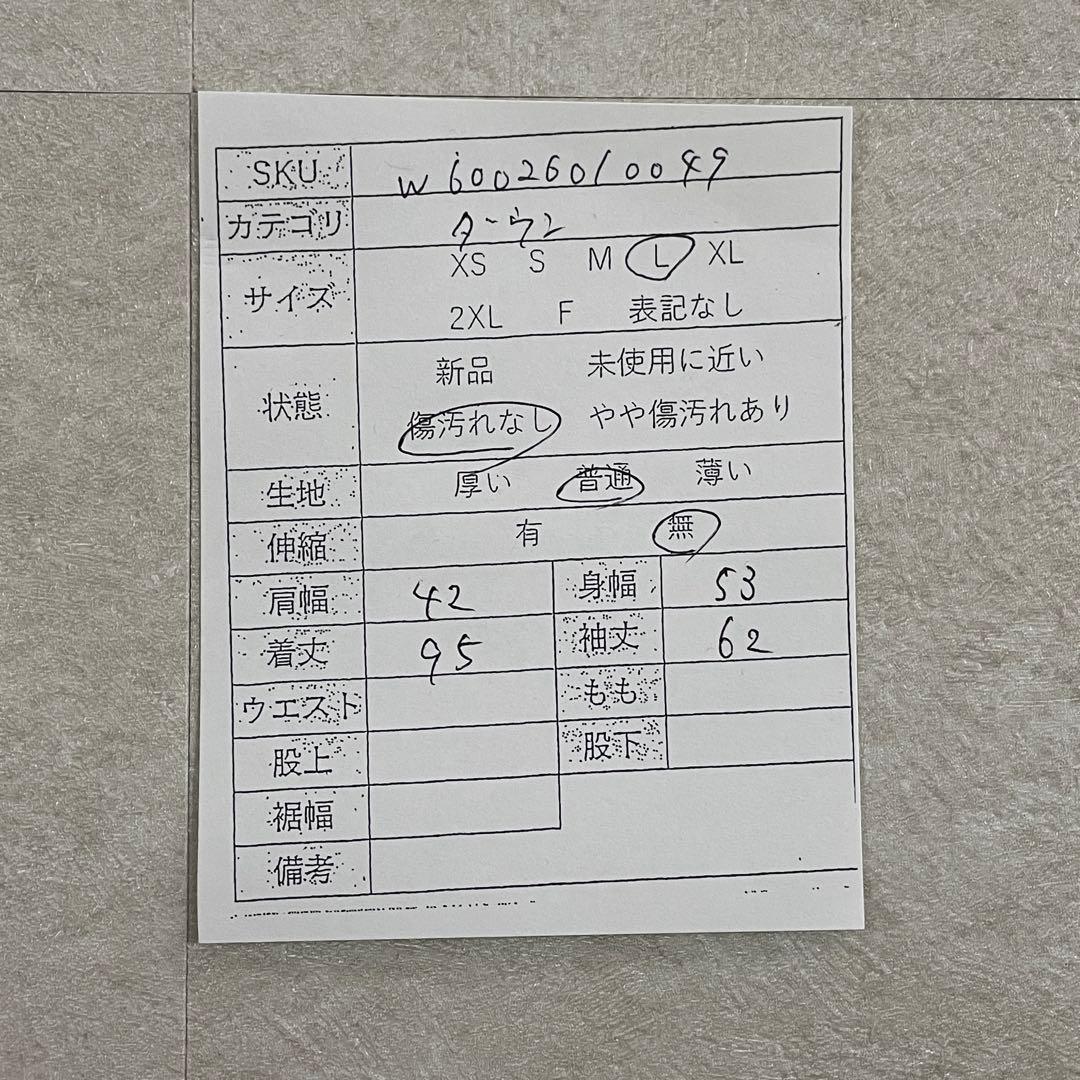 SKU W60026010049
カテゴリ ダウン
サイズ XS S M L XL
2XL F 表記なし
状態 新品 未使用に近い
傷汚れなし やや傷汚れあり
生地 厚い 普通 薄い
伸縮 有 無
肩幅 42 身幅 53
着丈 95 袖丈 62
ウエスト もも
股上 股下
裾幅
備考